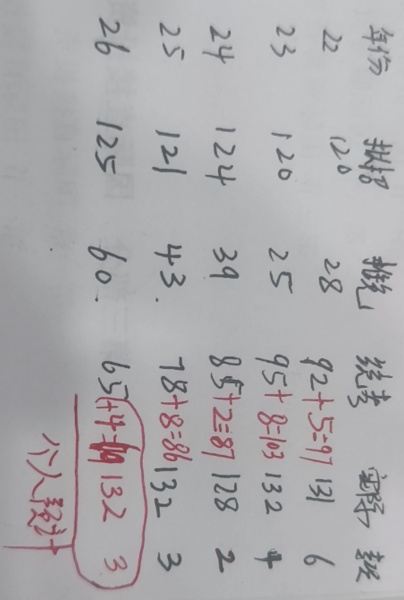 年份 拟招 推免 统考 实际
22 120 28 92+5=97 131 6
23 120 25 95+8=103 132 4
24 124 39 85+2=87 128 2
25 121 43 78+8=86 132 3
26 125 60 65+4=69 132 3
个人预计